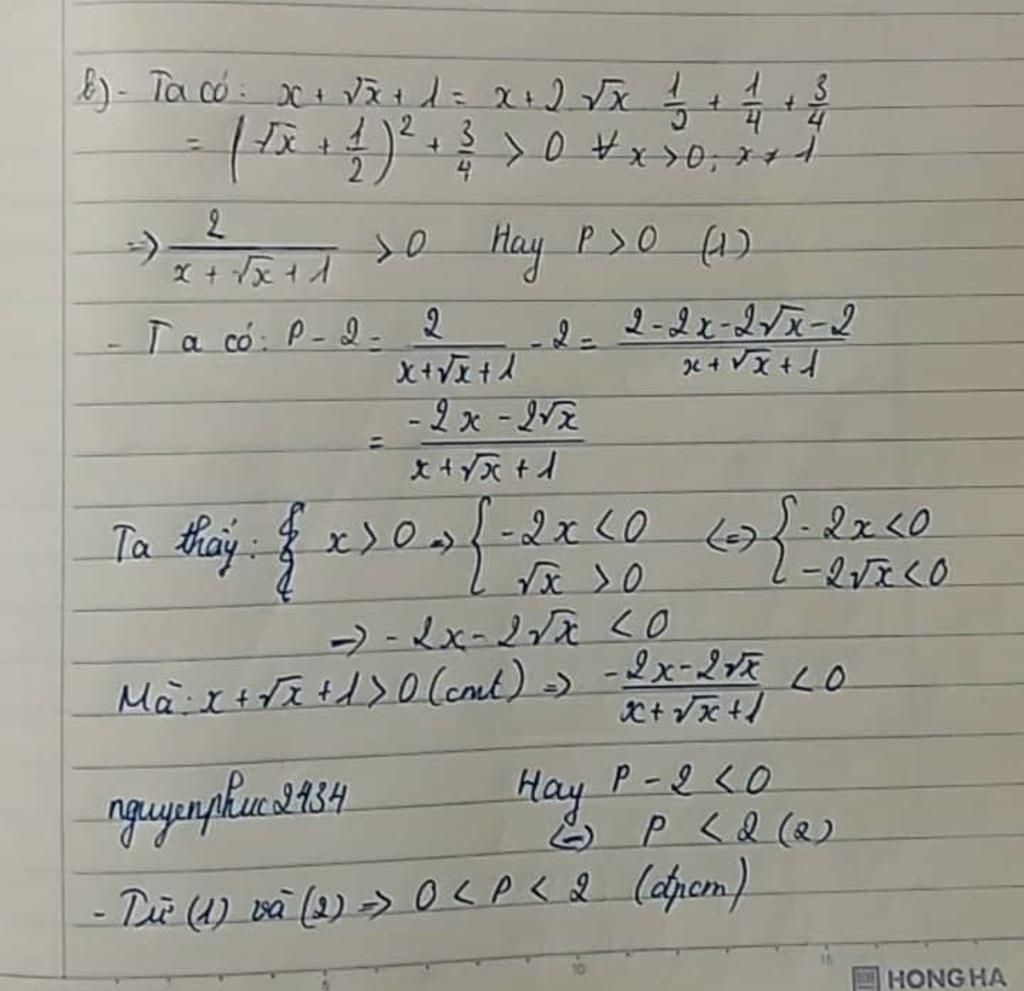 b) - Ta có: x + √x + 1 = x + 2 √x 1/2 + 1/4 + 3/4
= (√x + 1/2)² + 3/4 > 0 ∀ x > 0; x ≠ 1
=> 2/(x + √x + 1) > 0 Hay P > 0 (1)
- Ta có: P - 2 = 2/(x + √x + 1) - 2 = (2 - 2x - 2√x - 2)/(x + √x + 1)
= (-2x - 2√x)/(x + √x + 1)
Ta thấy: { x > 0 => { -2x < 0 ; √x > 0 <=> { -2x < 0 ; -2√x < 0
=> -2x - 2√x < 0
Mà: x + √x + 1 > 0 (cmt) => (-2x - 2√x)/(x + √x + 1) < 0
nguyenphuc2434 Hay P - 2 < 0
<=> P < 2 (2)
- Từ (1) và (2) => 0 < P < 2 (đpcm)
5 10 15
HONG HA